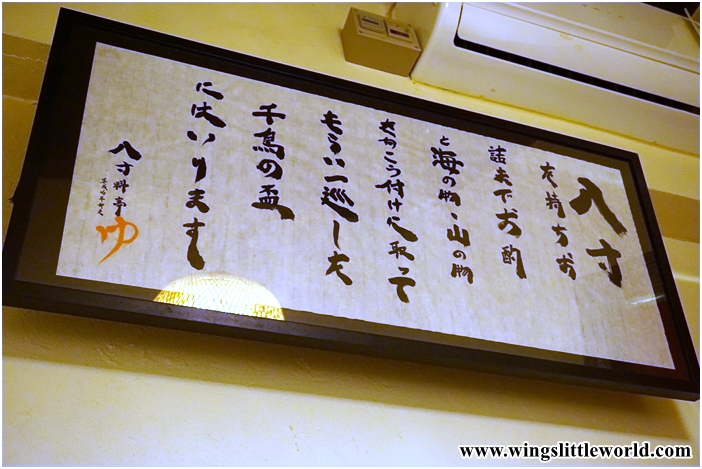 八寸
を持ちお
詰までお酌
と海の物・山の物
さかこう付けた取って
もらい一巡した
千鳥の盃
にはいります
八寸料亭
ゆ
www.wingslittleworld.com